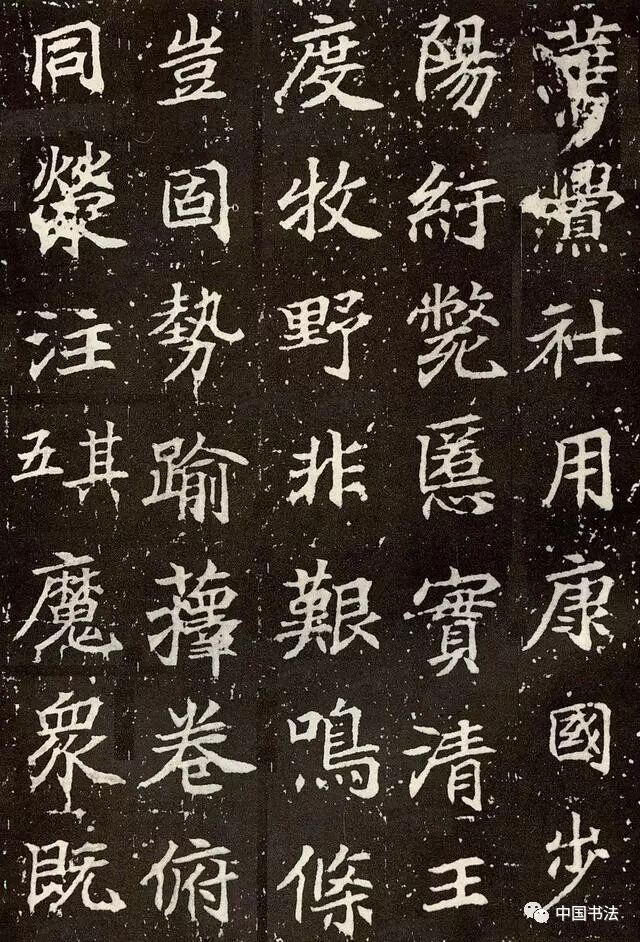 社用康國步
陽紂斃慝實清王
度牧野非艱鳴條
豈固勢踰蘀卷俯
同滎注其五魔眾既
中国书法